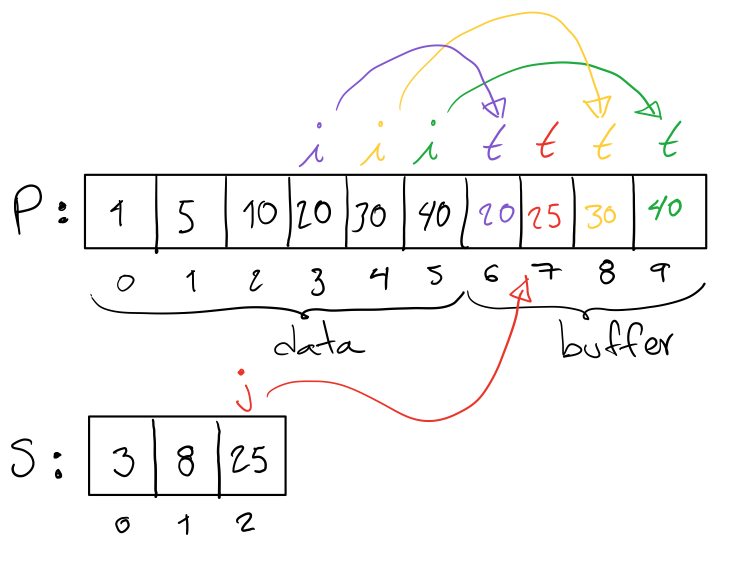 i i i t t t t
P: 1 5 10 20 30 40 20 25 30 40
0 1 2 3 4 5 6 7 8 9
data buffer
j
S: 3 8 25
0 1 2